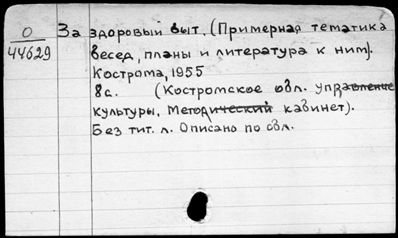 О
44629
За здоровый быт. (Примерная тематика
бесед, планы и литература к ним).
Кострома, 1955
8с. (Костромское обл. управление
культуры, Методический кабинет).
Без тит. л. Описано по обл.